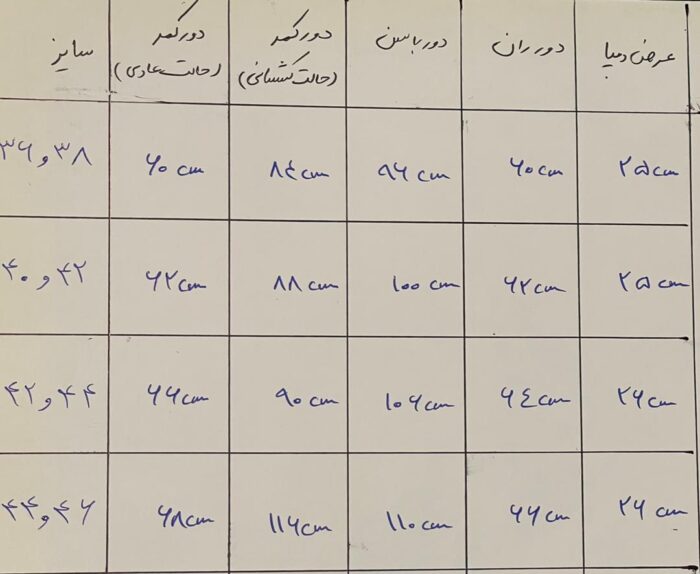 عرض دمپا دور ران دور باسن دور کمر دور کمر سایز
(حالت کشسانی) (حالت عادی)
۲۵ cm ۶۰ cm ۹۶ cm ۸۴ cm ۶۰ cm ۳۸ و ۳۶
۲۵ cm ۶۲ cm ۱۰۰ cm ۸۸ cm ۶۲ cm ۴۲ و ۴۰
۲۶ cm ۶۴ cm ۱۰۶ cm ۹۰ cm ۶۶ cm ۴۴ و ۴۲
۲۶ cm ۶۶ cm ۱۱۰ cm ۱۱۶ cm ۶۸ cm ۴۶ و ۴۴